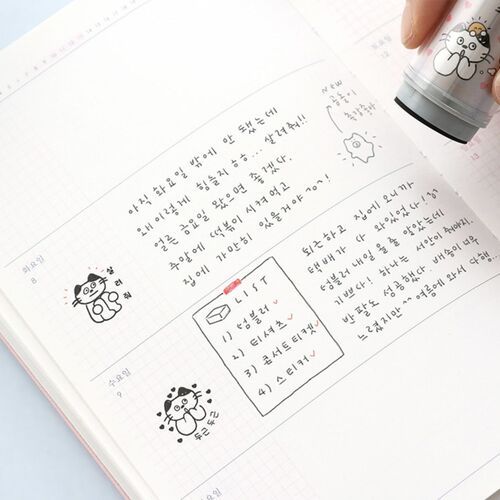 화요일
8
아직 화요일 밖에 안 됐는데
왜이렇게 힘들지 ㅎㅎ... 살려줘!!
얼른 금요일 왔으면 좋겠다.
주말에 떡볶이 시켜먹고
집에 가만히 있을거야
New
곰돌이
살려줘
수요일
9
LIST
1) 텀블러 ✓
2) 티셔츠 ✓
3) 콘서트티켓 ✓
4) 스티커 ✓
두근두근
퇴근하고 집에 오니까
택배가 다 와있었다!
텀블러 내일 올 줄 알았는데
기쁘다! 하나는 서안이 줘야지.
반팔도 성공했다. 배송이 너무
느렸지만 여름에 와서 다행...
목요일
토요일
12
13